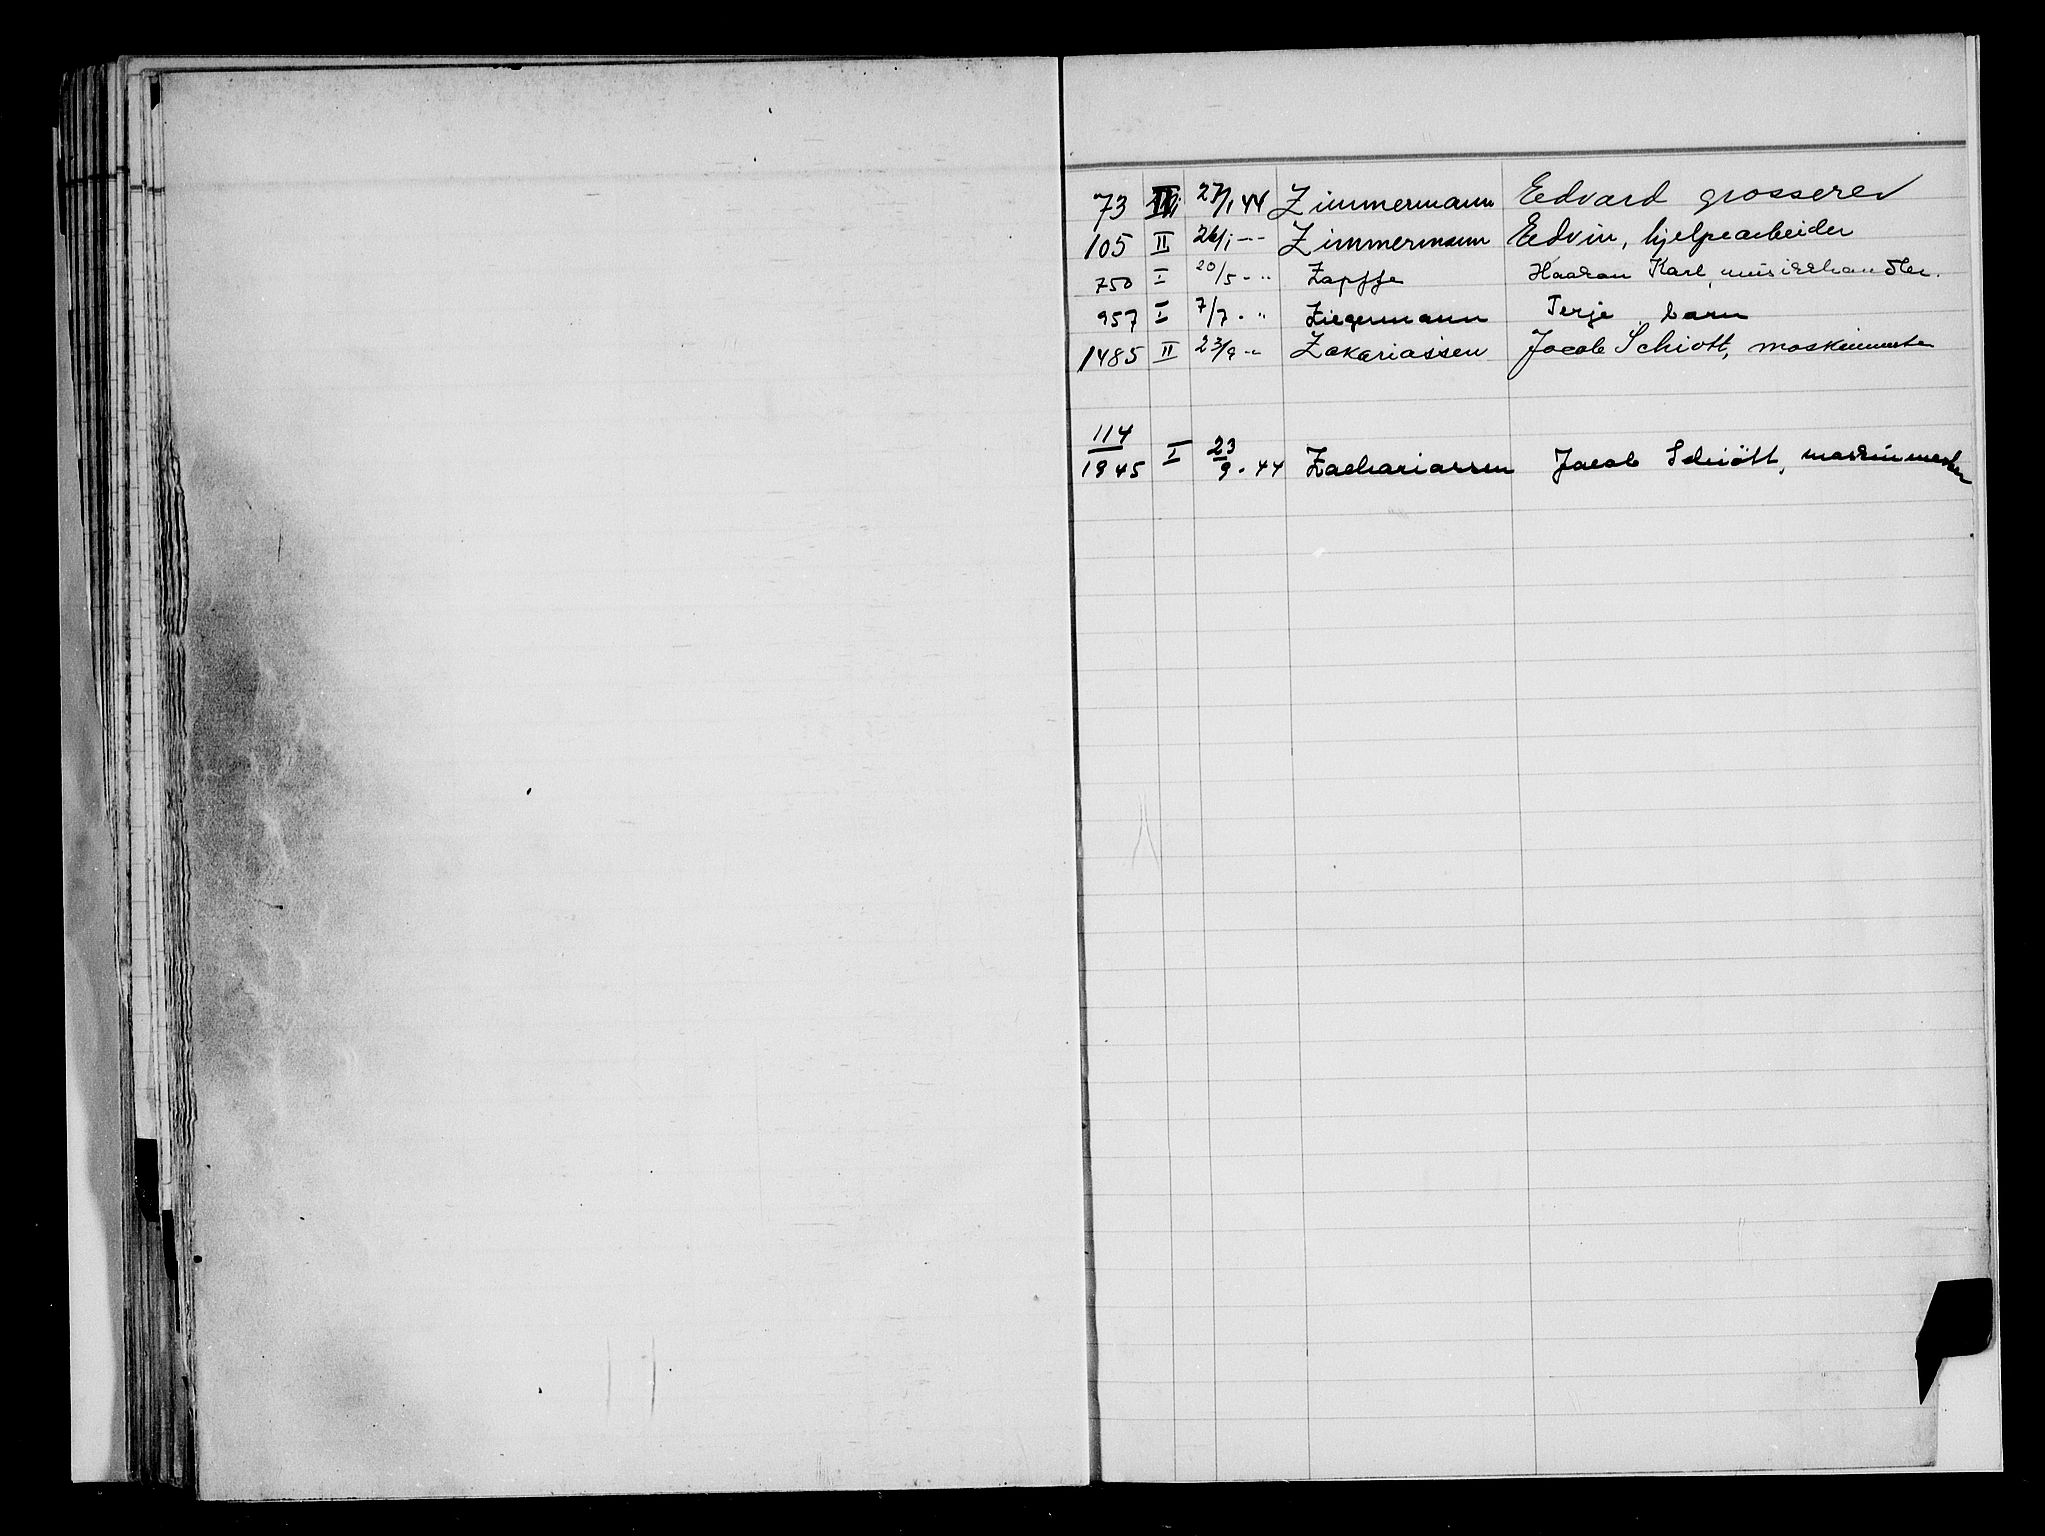 73 II 27/1 44 Zimmermann Edvard grosserer
105 II 26/1 -- Zimmermann Edvin, hjelpearbeider
750 I 20/5 - " Zapffe Haakon Karl, musikkhandler.
957 I 7/7 - " Ziegermann Terje barn
1485 II 23/9 -" Zakariassen Jacob Schiott, maskinmester
114
1945 I 23/9 - 44 Zachariassen Jacob Schiött, maskinmester